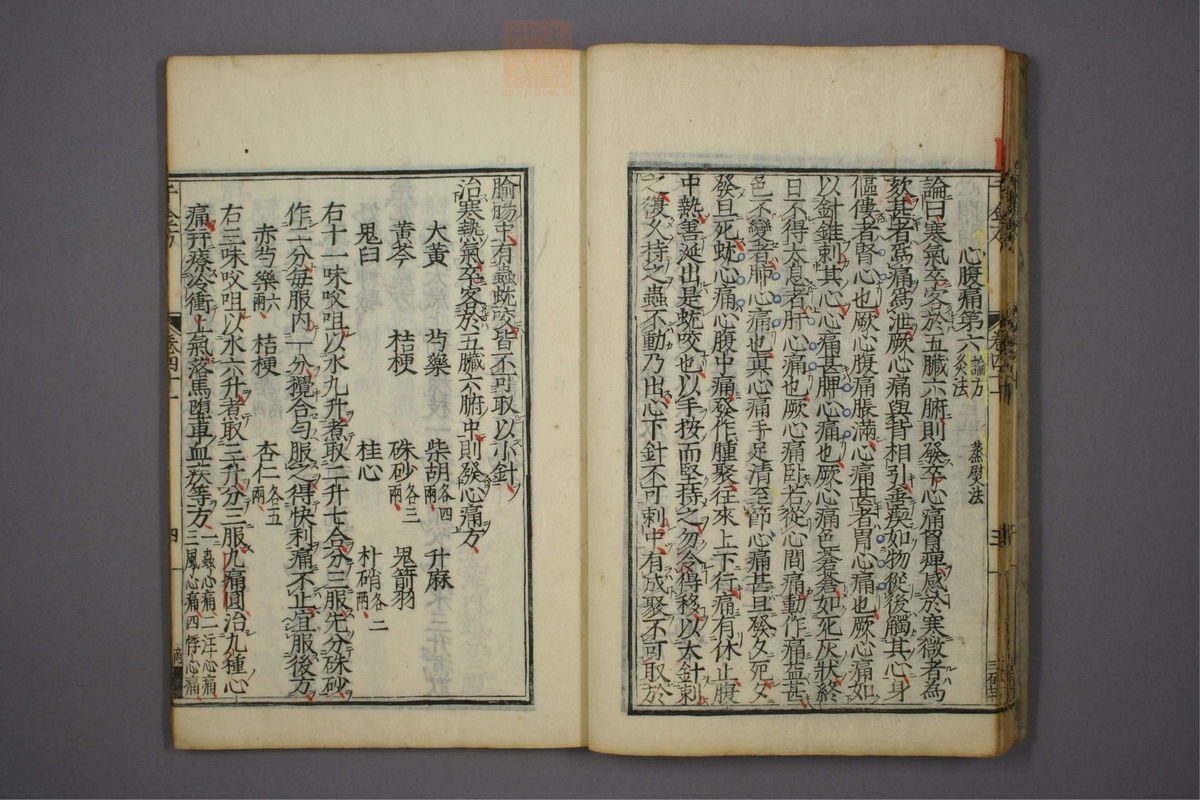 心腹痛第六 論方 灸法 蒸熨法
論曰寒氣卒客於五臟六腑則發卒心痛胷痺感於寒微者為
欬甚者為痛為泄厥心痛與背相引善瘈如物從後觸其心身
傴僂者腎心也厥心腹痛脹滿心痛甚者胃心痛也厥心痛如
以針錐刺其心心痛甚脾心痛也厥心痛色蒼蒼如死灰狀終
日不得太息者肝心痛也厥心痛臥若從心間痛動作痛益甚
色不變者肺心痛也真心痛手足清至節心痛甚旦發夕死夕
發旦死蚘心痛心腹中痛發作腫聚往來上下行痛有休止腹
中熱善涎出是蚘咬也以手按而堅持之勿令得移以大針刺
之復久持之蟲不動乃出心下針不可刺中有成聚不可取於
千金方 卷四十一 三
腧腸中有蟲蚘咬皆不可取以小針
治寒熱氣卒客於五臟六腑中則發心痛方
大黃 芍藥 柴胡各四兩 升麻
黃芩 桔梗 硃砂各三兩 鬼箭羽
鬼臼 桂心 朴硝各二兩
右十一味㕮咀以水九升煮取二升七合分三服先分硃砂
作二分每服內一分攪合勻服之得快利痛不止宜服後方
赤芍藥六兩 桔梗 杏仁各五兩
右三味㕮咀以水六升煮取三升分三服九痛圓治九種心
痛并療冷衝上氣落馬墮車血疾等方一蟲心痛二注心痛三風心痛四悸心痛
千金方 卷四十一 四